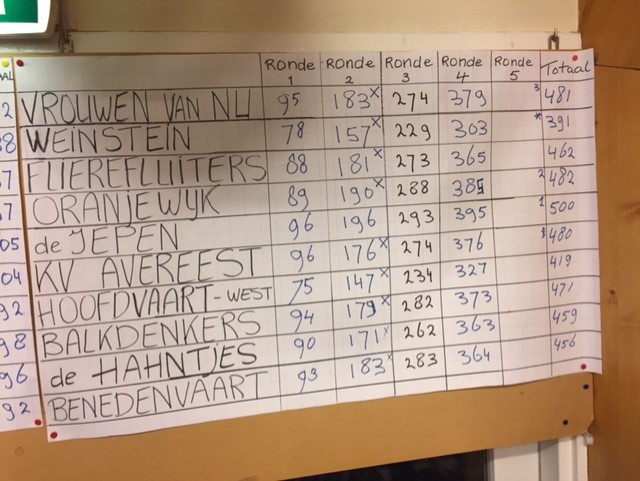 AAL Ronde 1 Ronde 2 Ronde 3 Ronde 4 Ronde 5 Totaal
2 VROUWEN VAN NU 95 183x 274 379 3 481
8 WEINSTEIN 78 157x 229 303 * 391
7 FLIEREFLUITERS 88 181x 273 365 462
7 ORANJEWIJK 89 190x 288 385 2 482
05 de JEPEN 96 196 293 395 1 500
04 KV AVEREEST 96 176x 274 376 480
92 HOOFDVAART-WEST 75 147x 234 327 419
98 BALKDENKERS 94 179x 282 373 471
96 de HAHNTJES 90 171x 262 363 459
92 BENEDENVAART 93 183x 283 364 456